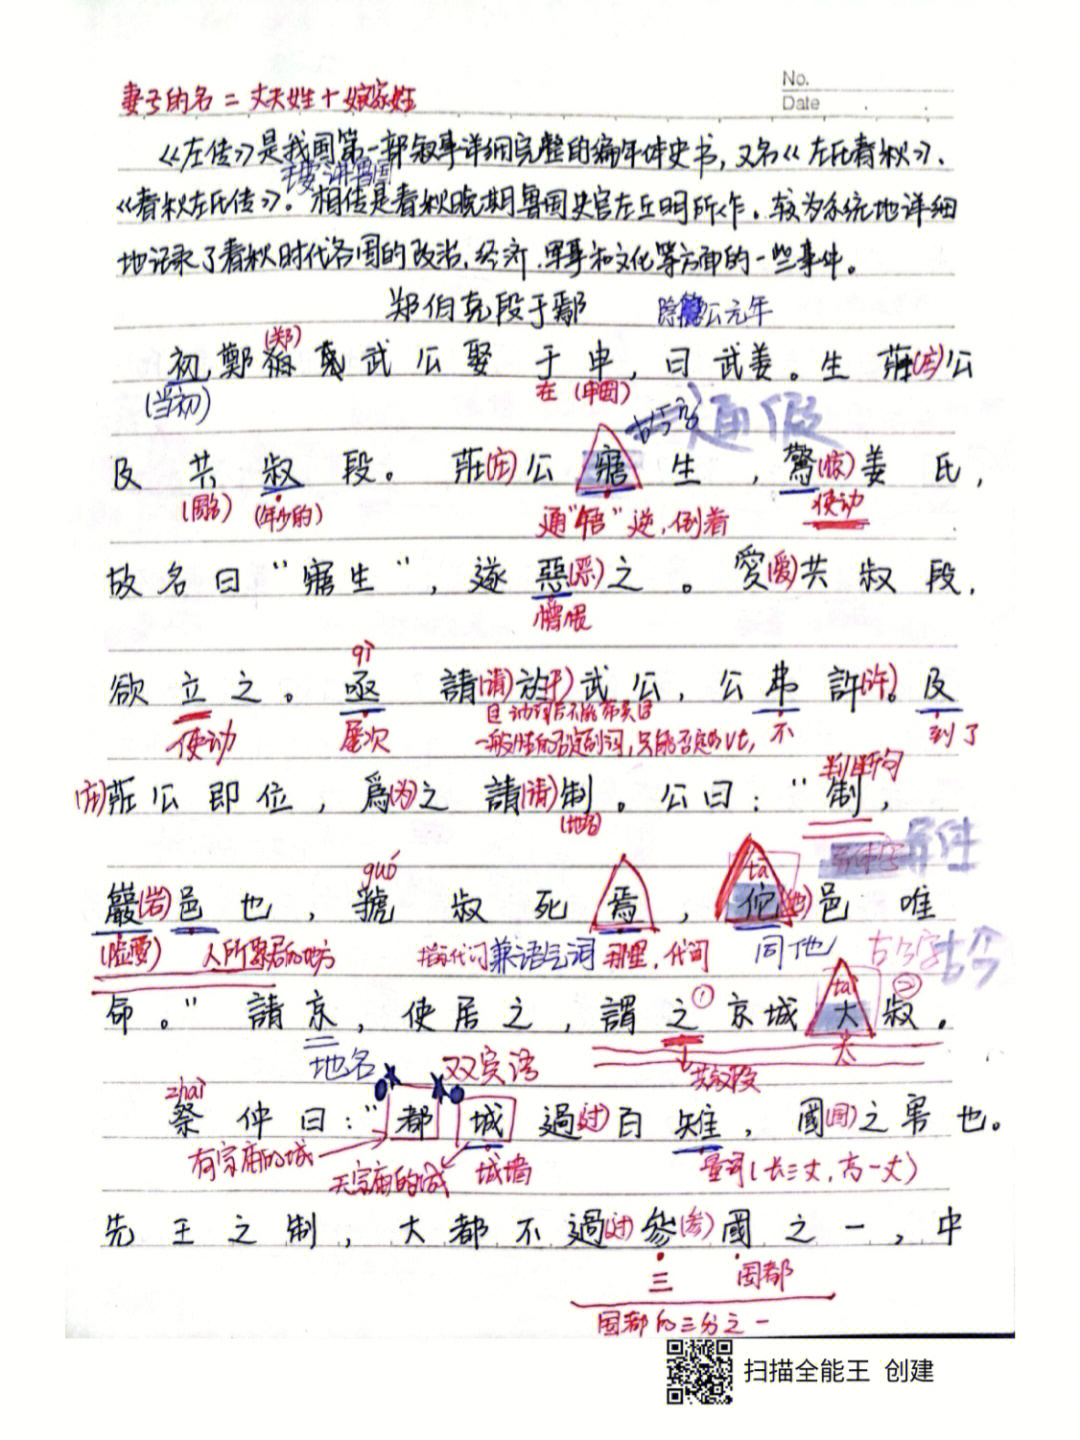 No.
妻子的名 = 丈夫姓 + 娘家姓
Date
《左传》是我国第一部叙事详细完整的编年体史书,又名《左氏春秋》、
主要讲鲁国
《春秋左氏传》。相传是春秋晚期鲁国史官左丘明所作。较为系统地详细
地记录了春秋时代各国的政治、经济、军事和文化等方面的一些事件。
郑伯克段于鄢 隐公元年
(郑)
初,鄭 武公娶于申,曰武姜。生莊(庄)公
(当初) 在 (申国)
古今字 通假
及共叔段。莊(庄)公寤生,驚(惊)姜氏,
(国名) (年少的) 通"牾"逆,倒着 使动
故名曰"寤生",遂惡(恶)之。愛(爱)共叔段,
憎恨
qì
欲立之。亟請(请)於(于)武公,公弗許(许)。及
使动 屡次 不 到了
且动词后不能带宾语
一般性的否定副词,只能否定的vt,
判断句
(庄)莊公即位,爲(为)之請(请)制。公曰:"制,
(地名)
异体字 异体
guó tā
巖(岩)邑也,虢叔死焉,佗(他)邑唯
(险要) 人所聚居的地方 指示代词兼语气词 那里,代词 同他 古今字 古今
① tài ②
命。"請京,使居之,謂之京城大叔。
地名 双宾语 共叔段 太
zhài
祭仲曰:"都城過(过)百雉,國(国)之害也。
有宗庙的城 无宗庙的城 城墙 量词(长三丈,高一丈)
先王之制,大都不過(过)參(参)國之一,中
三 国都
国都的三分之一
扫描全能王 创建